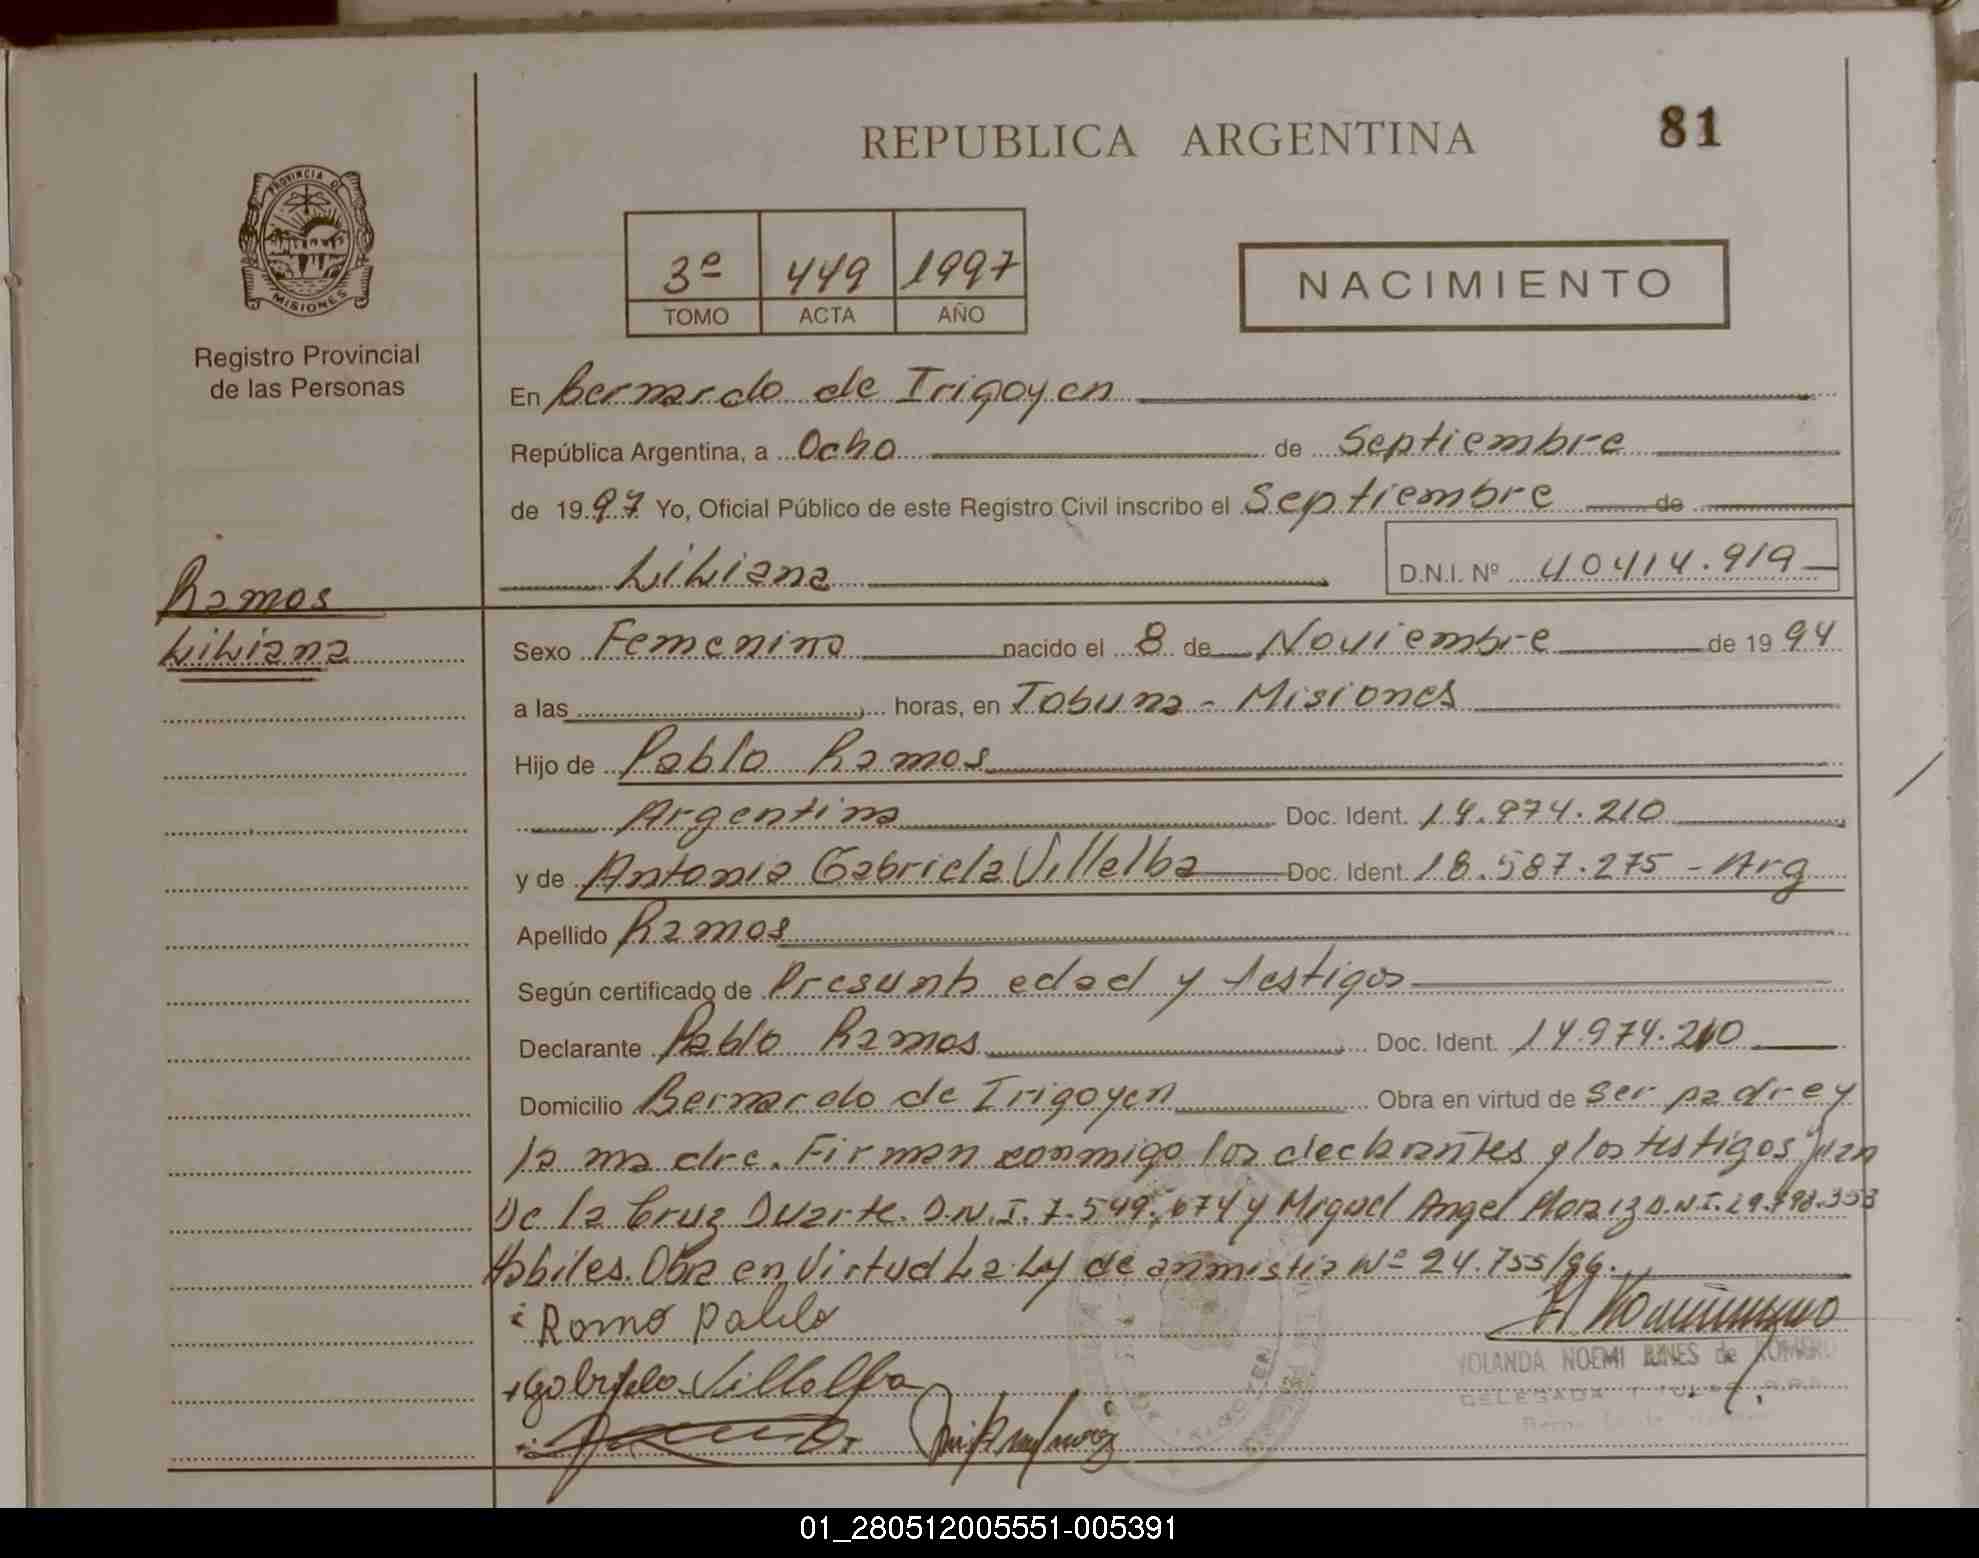 REPUBLICA ARGENTINA
81
PROVINCIA DE
MISIONES
Registro Provincial
de las Personas
3º 449 1997
TOMO ACTA AÑO
NACIMIENTO
En Bernardo de Irigoyen
República Argentina, a Ocho de Septiembre
de 1997 Yo, Oficial Público de este Registro Civil inscribo el Septiembre de
Liliana D.N.I. Nº 40414.919
Ramos
Liliana
Sexo Femenino nacido el 8 de Noviembre de 1994
a las horas, en Tobuna - Misiones
Hijo de Pablo Ramos
Argentino Doc. Ident. 14.974.210
y de Antonia Gabriela Villalba Doc. Ident. 18.587.275 - Arg
Apellido Ramos
Según certificado de Presunta edad y testigos
Declarante Pablo Ramos Doc. Ident. 14.974.210
Domicilio Bernardo de Irigoyen Obra en virtud de Ser padre y
la madre. Firman conmigo los declarantes y los testigos Juan
De la Cruz Duarte. D.N.I. 7.549.674 y Miguel Angel D.N.I. 29.798.353
Habiles. Obra en Virtud La Ley de anmistia Nº 24.755/96.
Ramo Pablo
Gabriela Villalba
YOLANDA NOEMI de ROMERO
DELEGADA TITULAR R.P.P.
01_280512005551-005391